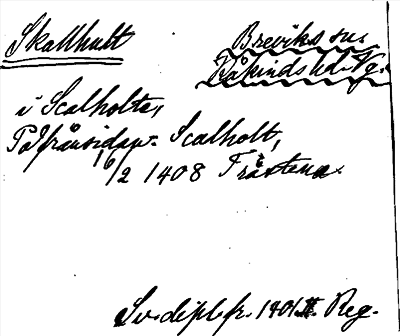 Skallhult
Breviks sn.
Kåkinds hd. Vg.
i Scalholte,
På frånsidan: Scalholt,
16/2 1408 Fråstena.
Sv. dipl. fr. 1401 II Reg.